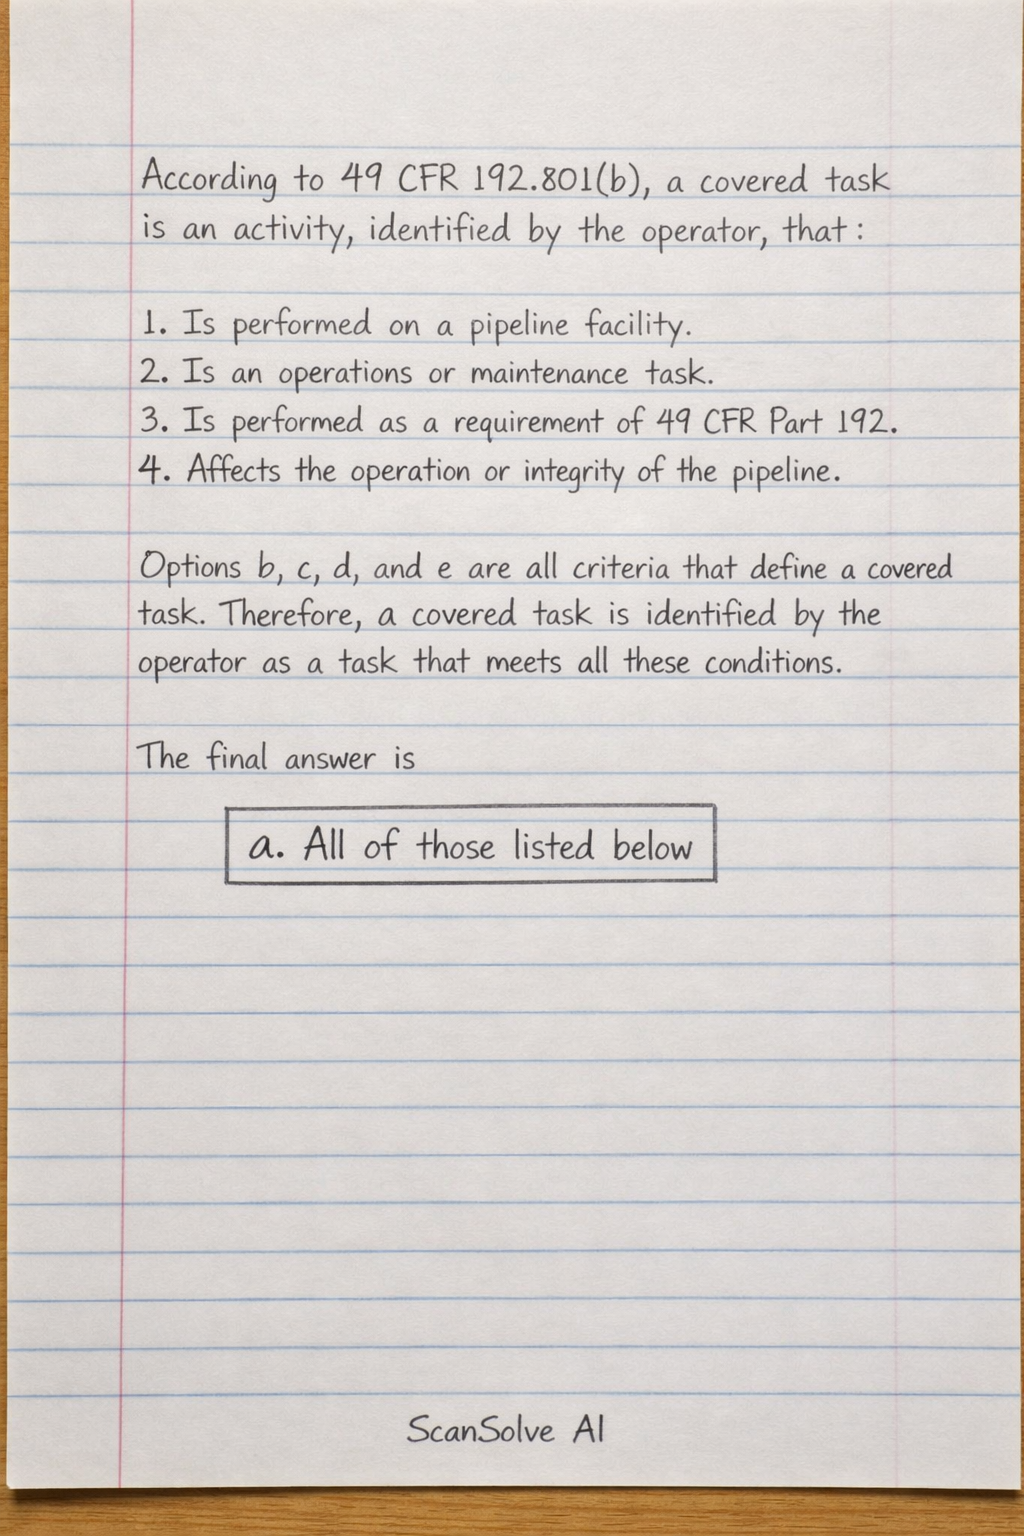 According to 49 CFR 192.801(b), a covered task
is an activity, identified by the operator, that:
1. Is performed on a pipeline facility.
2. Is an operations or maintenance task.
3. Is performed as a requirement of 49 CFR Part 192.
4. Affects the operation or integrity of the pipeline.
Options b, c, d, and e are all criteria that define a covered
task. Therefore, a covered task is identified by the
operator as a task that meets all these conditions.
The final answer is
a. All of those listed below
ScanSolve AI